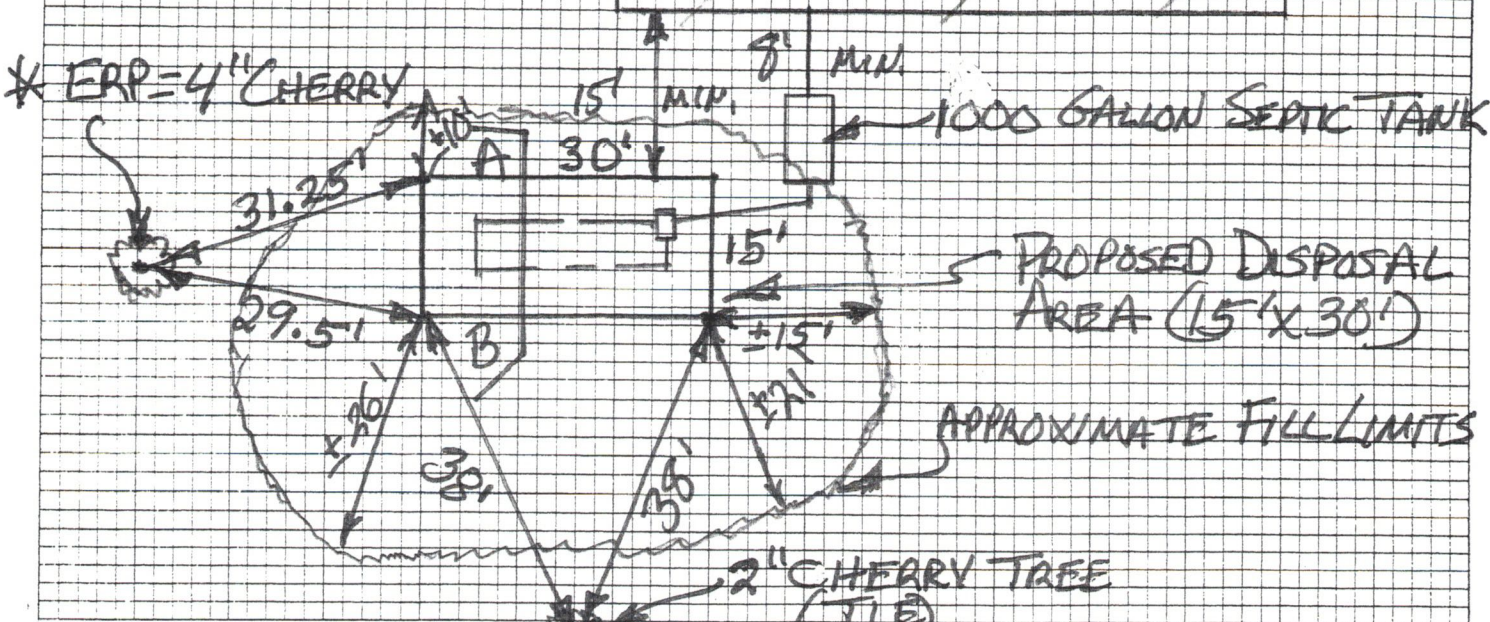 8' MIN.
* ERP=4" CHERRY
15' MIN.
1000 GALLON SEPTIC TANK
±10'
A
30'
31.25'
15'
PROPOSED DISPOSAL
AREA (15'X30')
29.5'
B
±15'
±26'
±21'
APPROXIMATE FILL LIMITS
38'
38'
2" CHERRY TREE
(TIE)